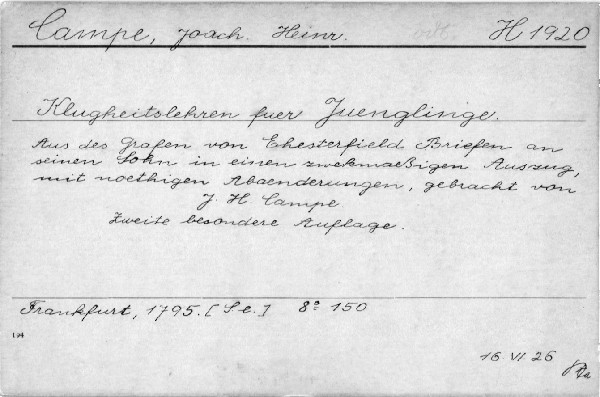 Campe, Joach. Heinr. H 1920
Klugheitslehren fuer Juenglinge.
Aus des Grafen von Chesterfield Briefen an
seinen Sohn in einen zwekmaeßigen Auszug,
mit noethigen Abaenderungen, gebracht von
J. H Campe
Zweite besondere Auflage.
Frankfurt, 1795. [S e.] 8° 150
194
16 VI 26